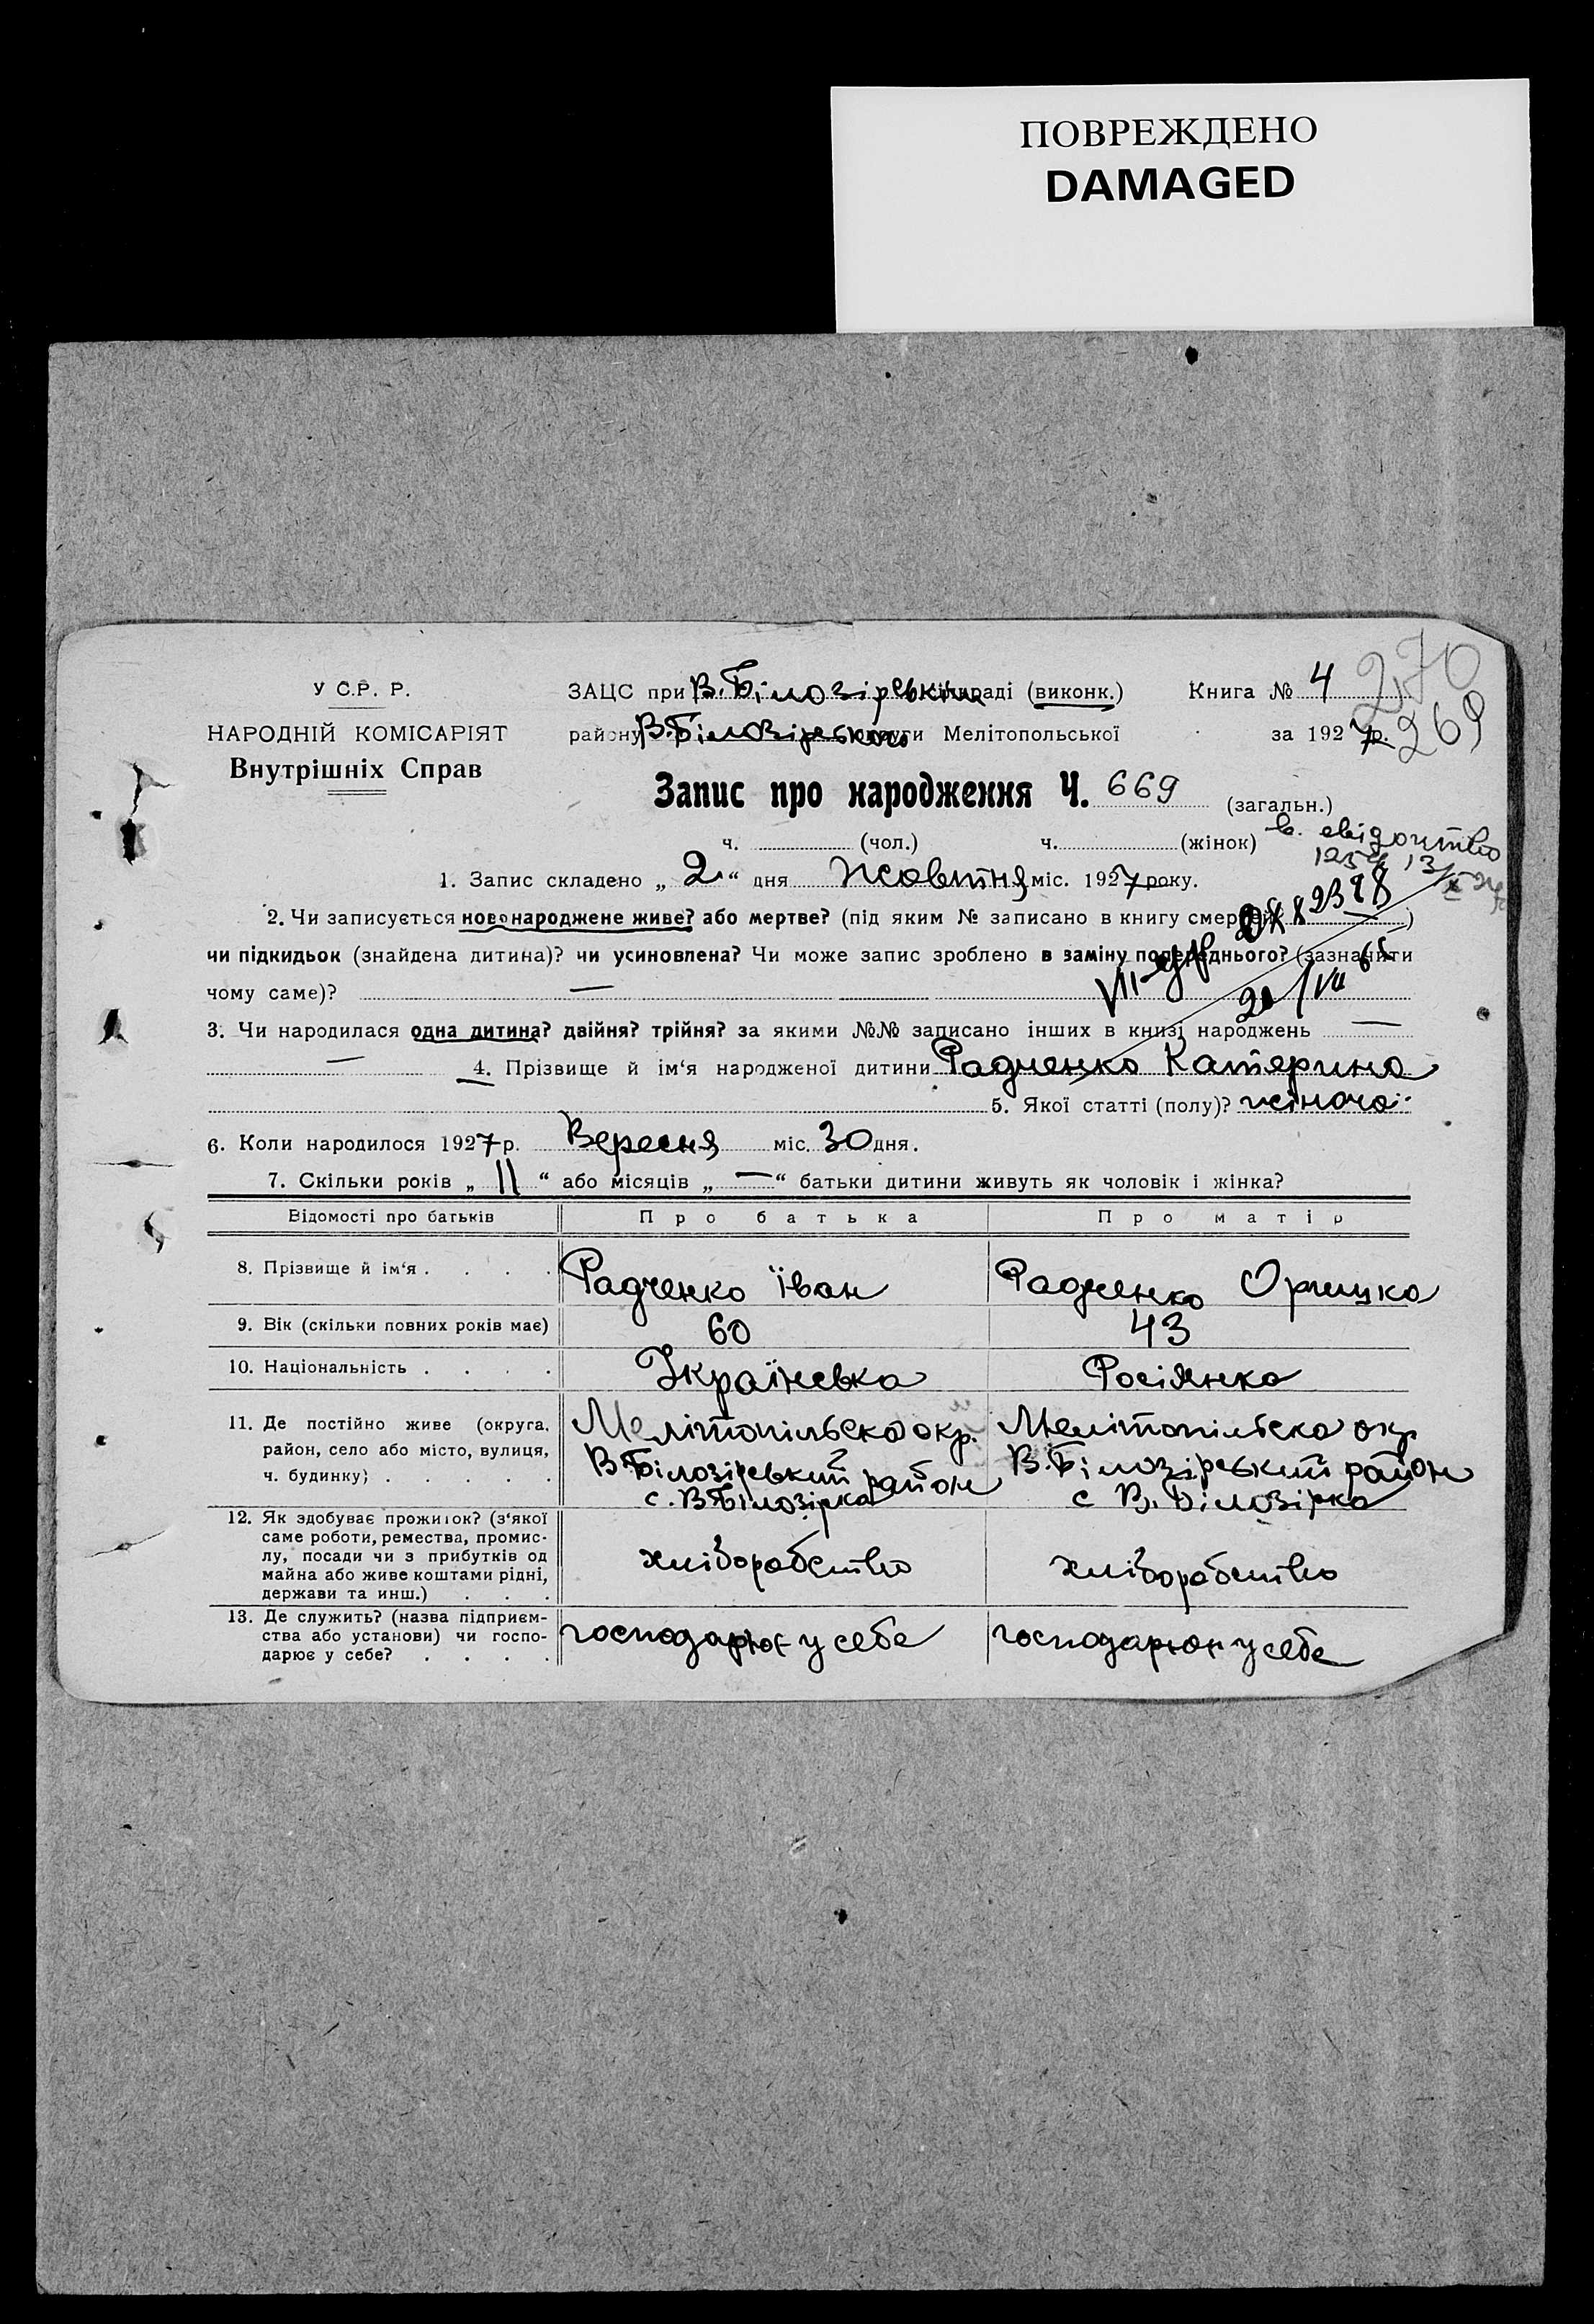 ПОВРЕЖДЕНО
DAMAGED
У С.Р. Р.
НАРОДНІЙ КОМІСАРІЯТ
Внутрішніх Справ
ЗАЦС при В.Білозірськім райраді (виконк.) Книга № 4
270
району В.Білозірського округи Мелітопольської за 1927 р.
269
Запис про народження Ч. 669 (загальн.)
ч. (чол.) ч. (жінок)
в. свідоцтво
1. Запис складено „ 2 “ дня Жовтня міс. 1927 року.
2. Чи записується новонароджене живе? або мертве? (під яким № записано в книгу смертей? —)
чи підкидьок (знайдена дитина)? чи усиновлена? Чи може запис зроблено в заміну попереднього? (зазначити
чому саме)? —
3. Чи народилася одна дитина? двійня? трійня? за якими №№ записано інших в книзі народжень —
— 4. Прізвище й ім‘я народженої дитини Радченко Катерина
5. Якої статті (полу)? жіночої
6. Коли народилося 1927 р. Вересня міс. 30 дня.
7. Скільки років „ 11 “ або місяців „ — “ батьки дитини живуть як чоловік і жінка?
Відомості про батьків Про батька Про матір
8. Прізвище й ім‘я . . . . Радченко Іван Радченко Оришка
9. Вік (скільки повних років має) 60 43
10. Національність . . . . Українська Росіянка
11. Де постійно живе (округа, район, село або місто, вулиця, ч. будинку) . . . . .
Мелітопільска окр.
В.Білозірський район
с. В Білозірка
Мелітопільска окр
В.Білозірський район
с В. Білозірка
12. Як здобуває прожиток? (з‘якої саме роботи, ремества, промислу, посади чи з прибутків од майна або живе коштами рідні, держави та инш.) . . .
хліборобство хліборобство
13. Де служить? (назва підприємства або установи) чи господарює у себе? . . . .
господарює у себе господарює у себе